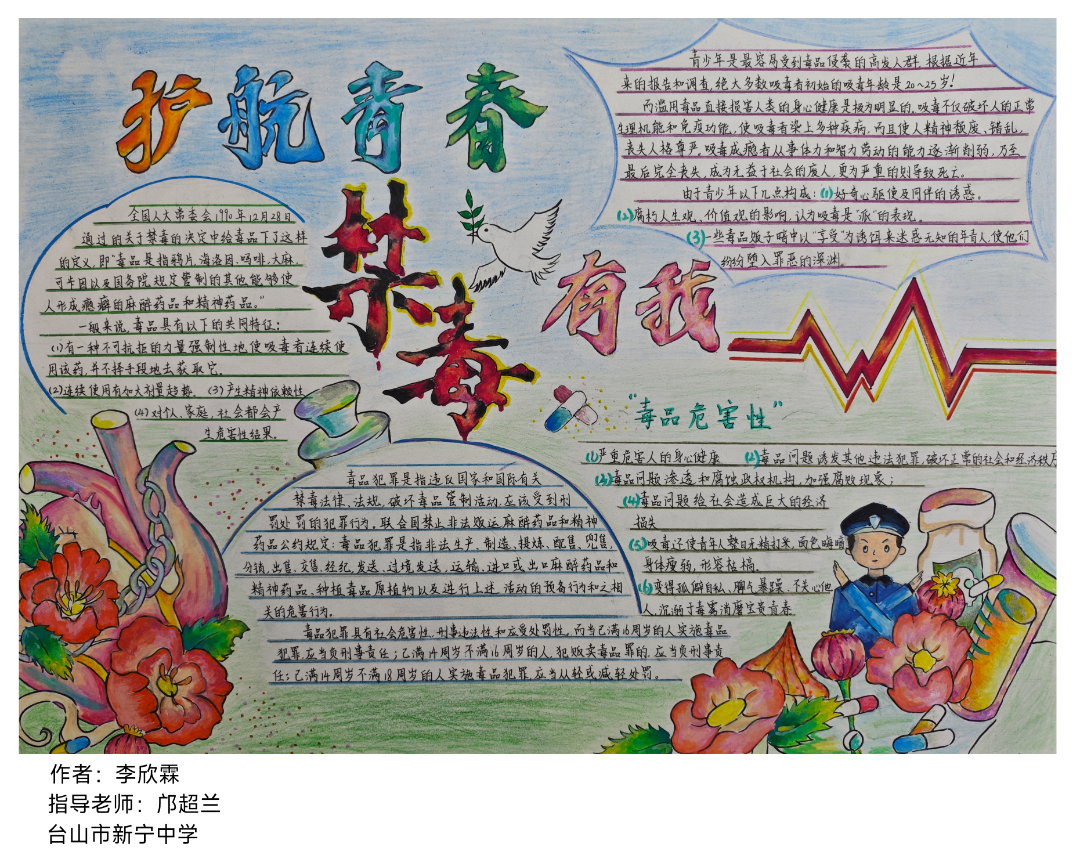 护航青春
禁毒
有我
全国人大常委会1990年12月28日
通过的关于禁毒的决定中给毒品下了这样
的定义,即"毒品是指鸦片,海洛因,吗啡,大麻,
可卡因以及国务院规定管制的其他能够使
人形成瘾癖的麻醉药品和精神药品。"
一般来说,毒品具有以下的共同特征:
(1)有一种不可抗拒的力量强制性地使吸毒者连续使
用该药,并不择手段地去获取它.
(2)连续使用有加大剂量趋势. (3)产生精神依赖性
(4)对个人、家庭,社会都会产
生危害性结果.
青少年是最容易受到毒品侵袭的高发人群.根据近年
来的报告和调查,绝大多数吸毒者初始的吸毒年龄是20~25岁!
而滥用毒品直接损害人类的身心健康是极为明显的,吸毒不仅破坏人的正常
生理机能和免疫功能,使吸毒者染上多种疾病,而且使人精神颓废、错乱,
丧失人格尊严,吸毒成瘾者从事体力和智力劳动的能力逐渐削弱,乃至
最后完全丧失,成为无益于社会的废人,更为严重的则导致死亡.
由于青少年以下几点构成:(1)好奇心驱使及同伴的诱惑.
(2)腐朽人生观、价值观的影响,认为吸毒是"派"的表现.
(3)一些毒品贩子暗中以"享受"为诱饵来迷惑无知的年青人,使他们
纷纷堕入罪恶的深渊.
"毒品危害性"
(1)严重危害人的身心健康 (2)毒品问题诱发其他违法犯罪,破坏正常的社会和经济秩序
(3)毒品问题渗透和腐蚀政权机构,加强腐败现象;
(4)毒品问题给社会造成巨大的经济
损失
(5)吸毒还使青年人整日无精打采,面色晦暗
身体瘦弱,形容枯槁.
(6)变得孤僻自私、脾气暴躁,不关心他
人,沉溺于毒害消磨宝贵青春
毒品犯罪是指违反国家和国际有关
禁毒法律、法规,破坏毒品管制活动,应该受到刑
罚处罚的犯罪行为.联合国禁止非法贩运麻醉药品和精神
药品公约规定:毒品犯罪是指非法生产、制造、提炼、配售,兜售,
分销,出售,交售,经纪,发送,过境发送,运输,进口或出口麻醉药品和
精神药品、种植毒品原植物以及进行上述活动的预备行为和之相
关的危害行为.
毒品犯罪具有社会危害性、刑事违法性和应受处罚性,而当已满16周岁的人实施毒品
犯罪,应当负刑事责任;已满14周岁不满16周岁的人,犯贩卖毒品罪的,应当负刑事责
任;已满14周岁不满18周岁的人实施毒品犯罪,应当从轻或减轻处罚.
作者：李欣霖
指导老师：邝超兰
台山市新宁中学